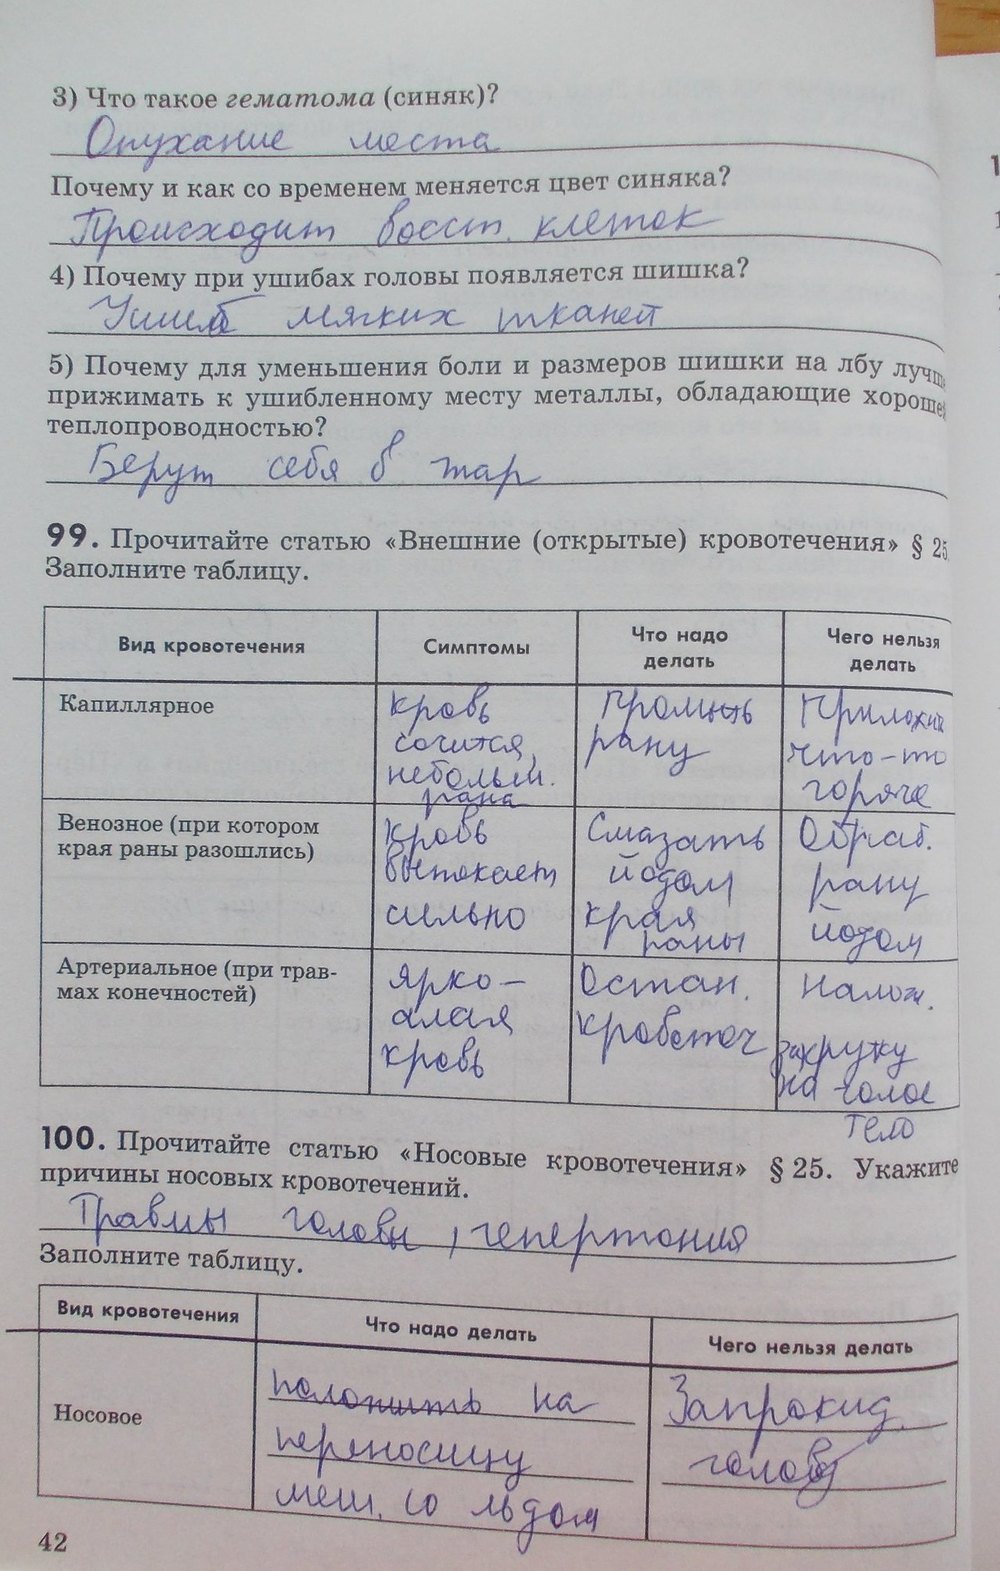 3) Что такое гематома (синяк)?
Опухание места
Почему и как со временем меняется цвет синяка?
Происходит восст. клеток
4) Почему при ушибах головы появляется шишка?
Ушиб мягких тканей
5) Почему для уменьшения боли и размеров шишки на лбу лучш
прижимать к ушибленному месту металлы, обладающие хороше
теплопроводностью?
Берут себя в жар
99. Прочитайте статью «Внешние (открытые) кровотечения» § 25
Заполните таблицу.
Вид кровотечения
Симптомы
Что надо
делать
Чего нельзя
делать
Капиллярное
кровь
сочится,
небольш.
рана
промыть
рану
Прилож
что-то
горяче
Венозное (при котором
края раны разошлись)
кровь
вытекает
сильно
Смазать
йодом
края
раны
Обраб.
рану
йодом
Артериальное (при трав-
мах конечностей)
ярко-
алая
кровь
Остан.
кровоточ
налож.
закрутку
на голое
тело
100. Прочитайте статью «Носовые кровотечения» § 25. Укажите
причины носовых кровотечений.
Травмы головы, гепертония
Заполните таблицу.
Вид кровотечения
Что надо делать
Чего нельзя делать
Носовое
положить на
переносицу
меш. со льдом
Запрокид.
голову
42